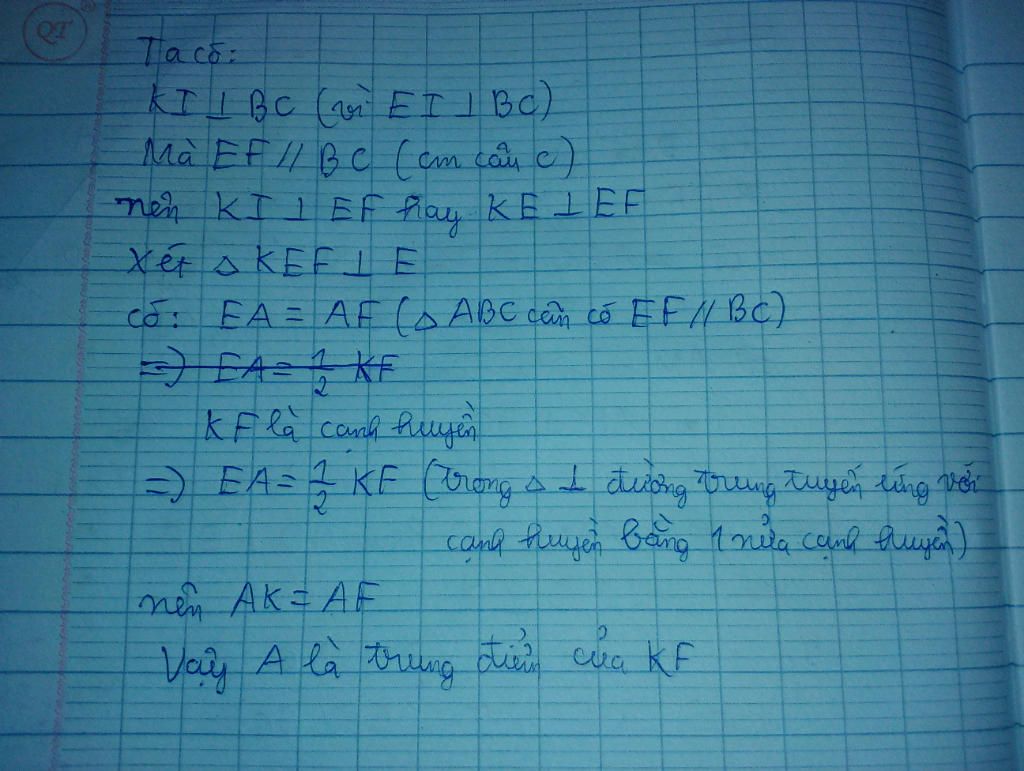 Ta có:
KI ⊥ BC (vì EI ⊥ BC)
Mà EF // BC (cm câu c)
nên KI ⊥ EF hay KE ⊥ EF
Xét △ KEF ⊥ E
có: EA = AF (△ ABC cân có EF // BC)
=) EA = 1/2 KF
KF là cạnh huyền
=) EA = 1/2 KF (trong △ ⊥ đường trung tuyến ứng với
cạnh huyền bằng 1 nửa cạnh huyền)
nên AK = AF
Vậy A là trung điểm của KF